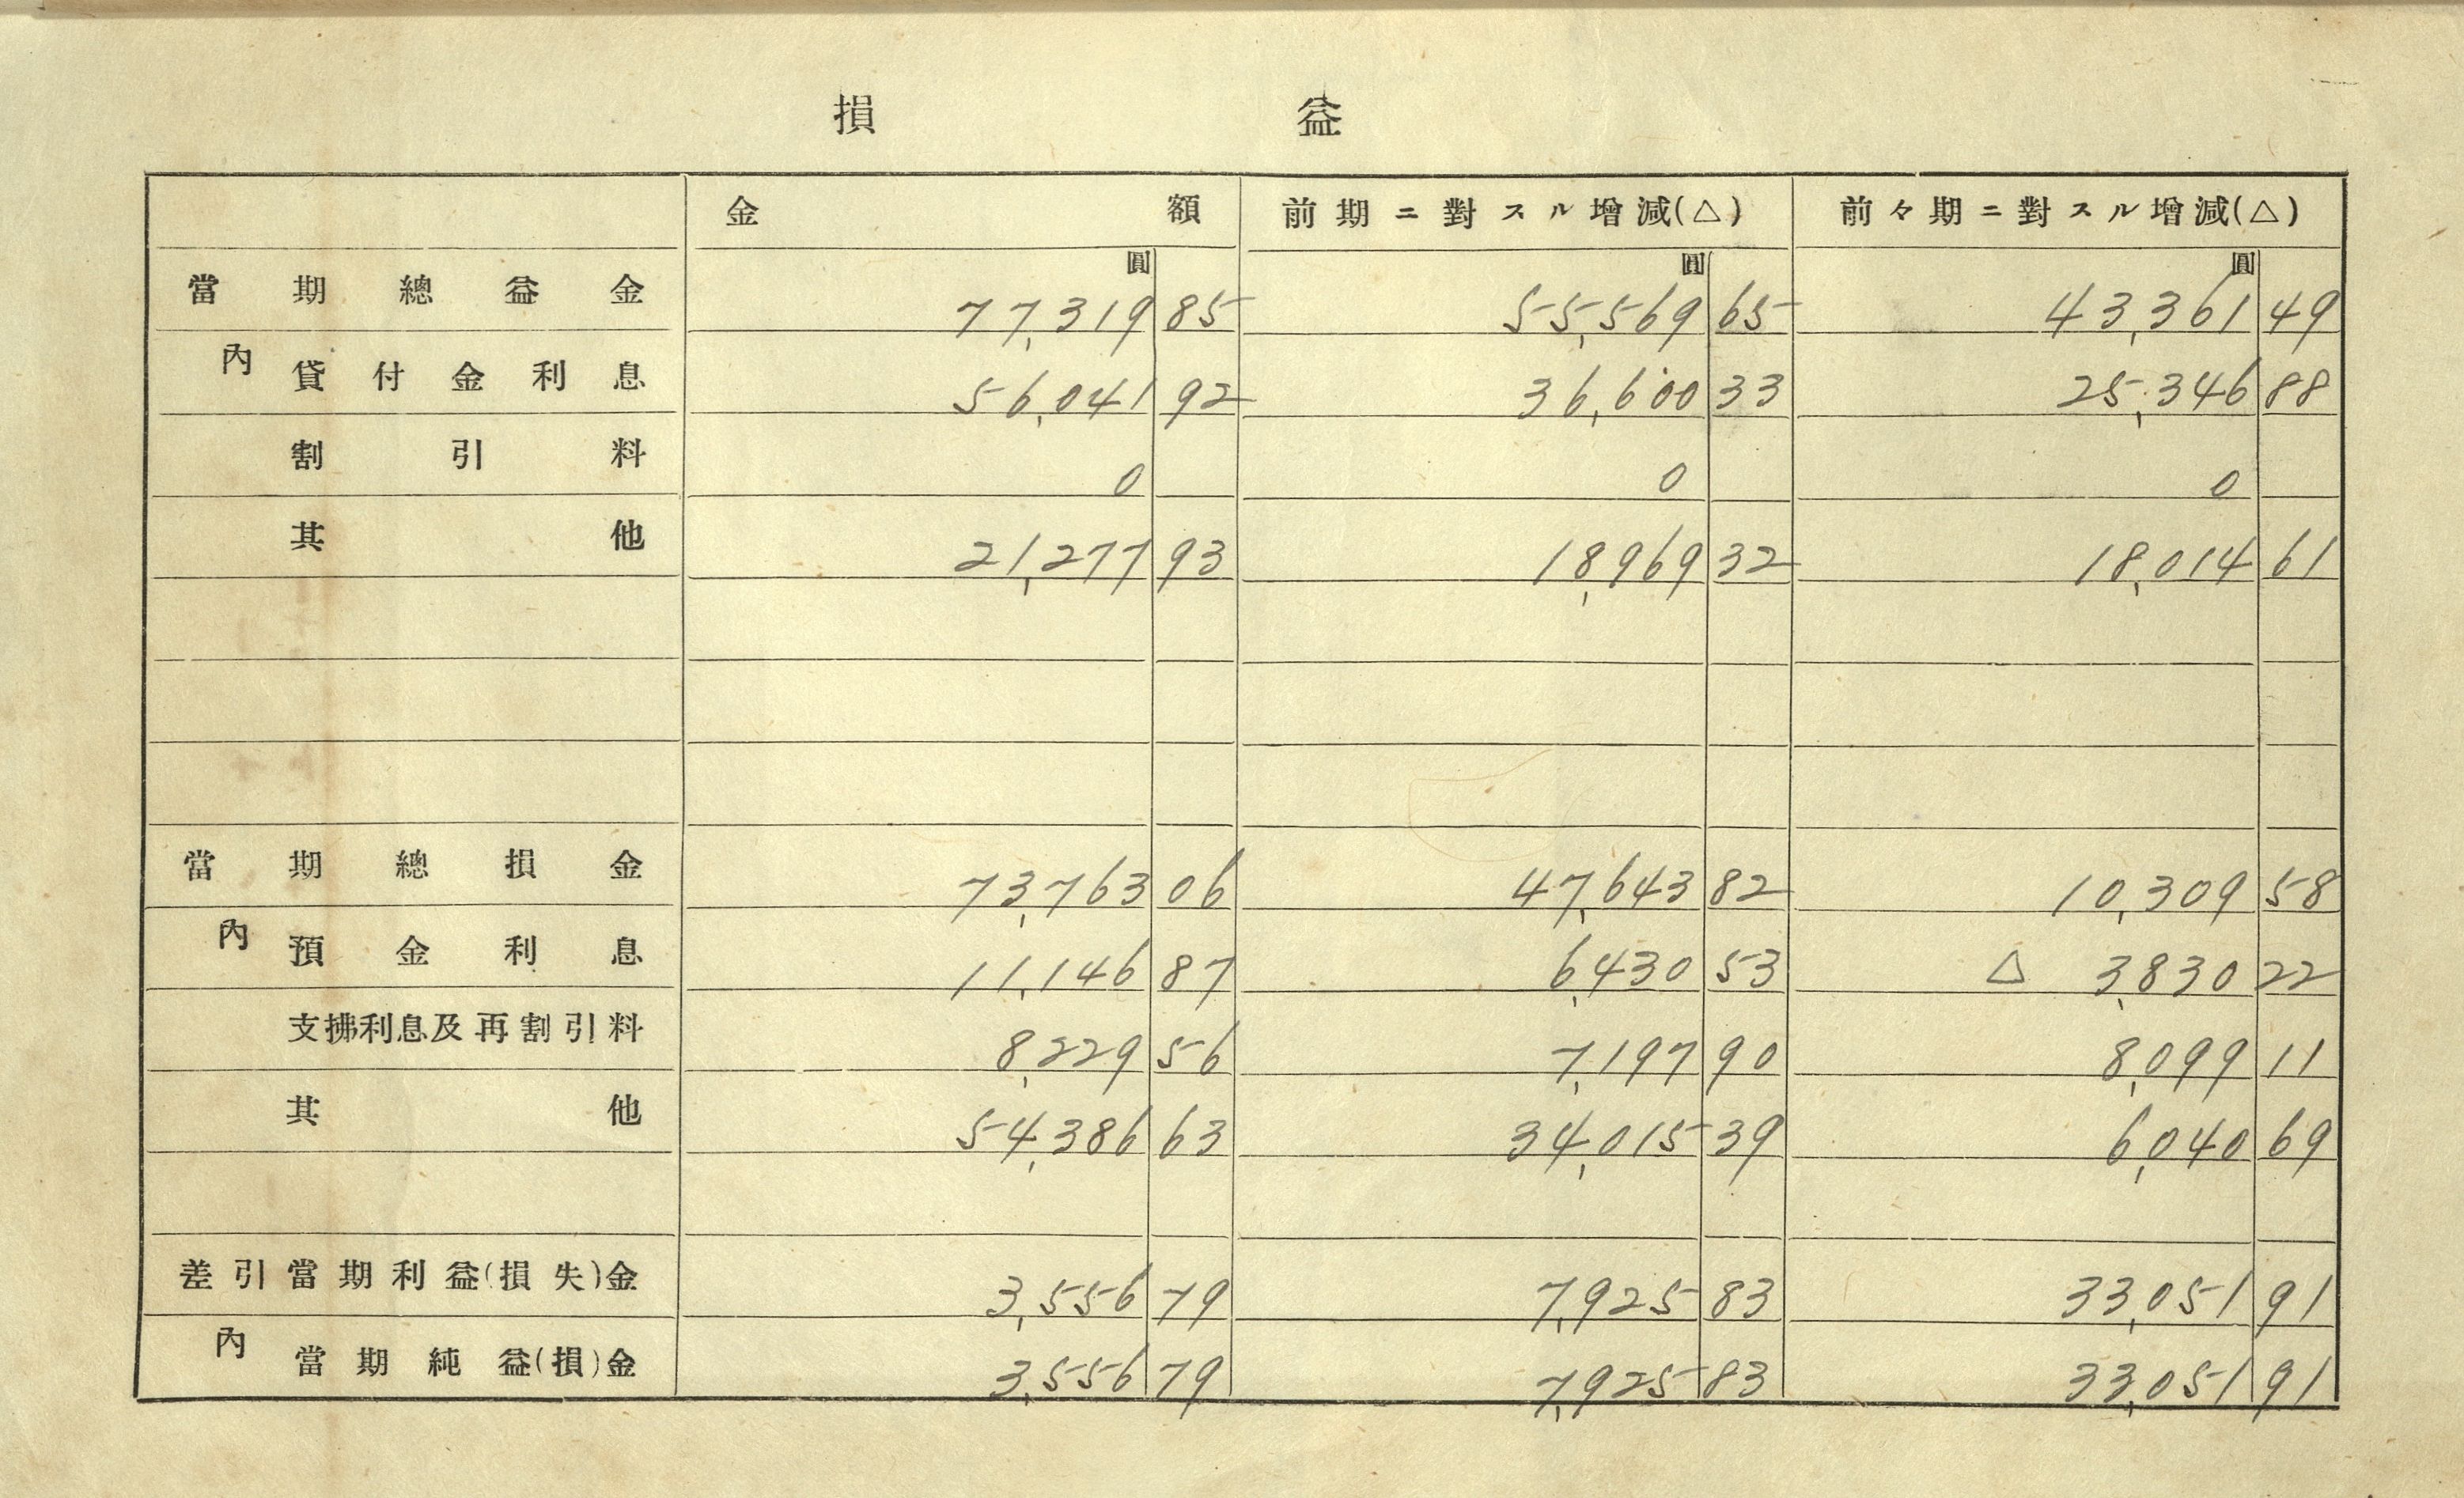 損益
金額 前期ニ對スル增減(△) 前々期ニ對スル增減(△)
圓 圓 圓
當期總益金 77,319 85 55,569 65 43,361 49
內 貸付金利息 56,041 92 36,600 33 25,346 88
割引料 0 0 0
其他 21,277 93 18,969 32 18,014 61
當期總損金 73,763 06 47,643 82 10,309 58
內 預金利息 11,146 87 6,430 53 △ 3,830 22
支拂利息及再割引料 8,229 56 7,197 90 8,099 11
其他 54,386 63 34,015 39 6,040 69
差引當期利益(損失)金 3,556 79 7,925 83 33,051 91
內 當期純益(損)金 3,556 79 7,925 83 33,051 91